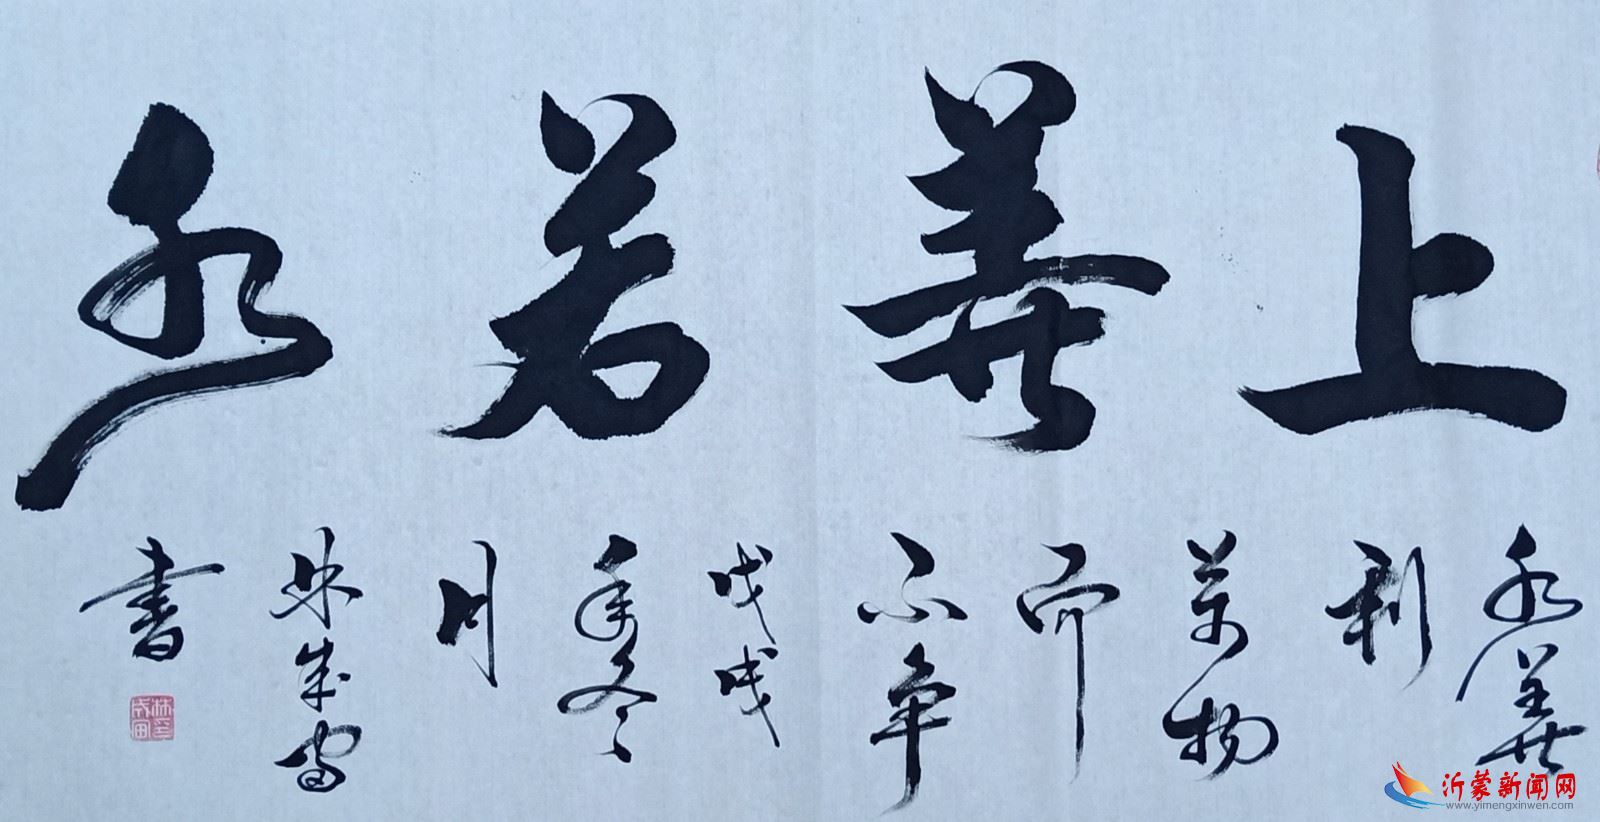 上善若水
水善
利
萬物
而
不争
戊戌
年冬
月
成富
書
沂蒙新闻网
www.yimengxinwen.com